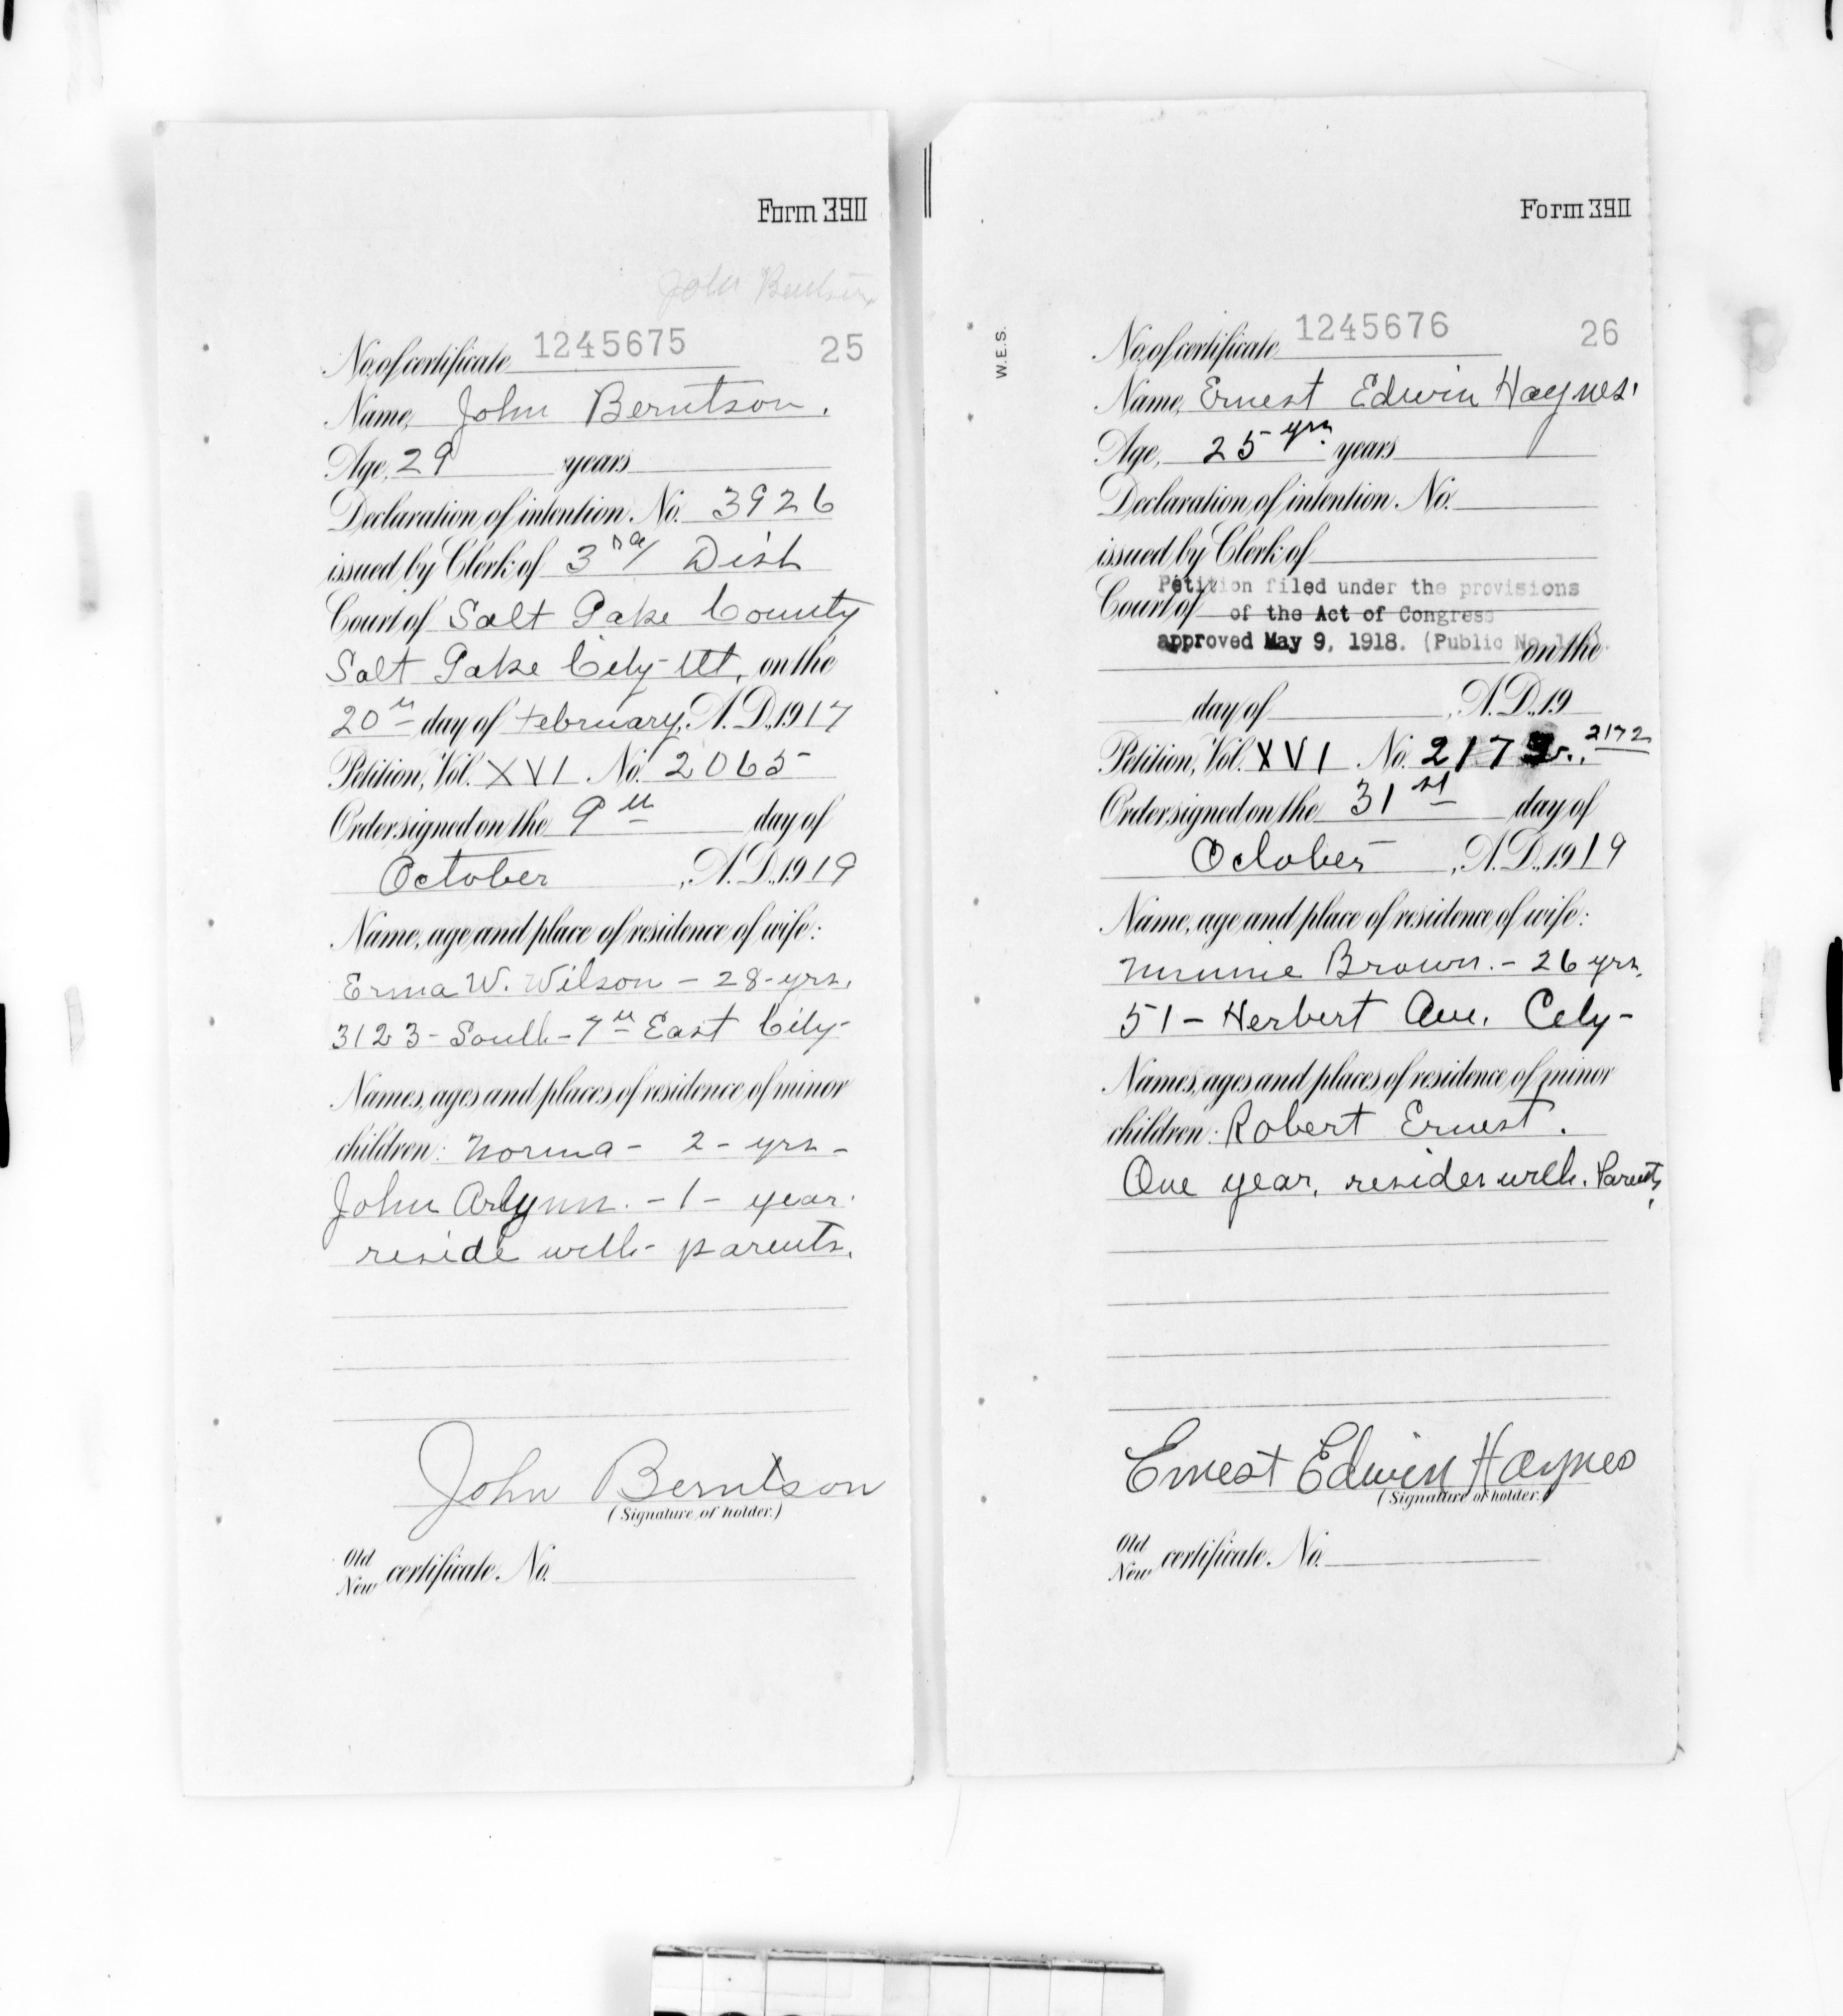 Form 390
John Berntson
No. of certificate 1245675 25
Name, John Berntson.
Age, 29 years
Declaration of intention No. 3926
issued by Clerk of 3rd Dist
Court of Salt Lake County
Salt Lake City Ut. on the
20th day of February, A.D., 1917
Petition, Vol. XVI No. 2065
Order signed on the 9th day of
October, A.D., 1919
Name, age and place of residence of wife:
Erma W. Wilson - 28 - yrs.
3123 - South - 7th East City -
Names, ages and places of residence of minor
children: Norma - 2 - yrs -
John Arlynn. - 1 - year.
reside with - parents.
John Berntson
(Signature of holder.)
Old
New certificate No.
Form 390
W.E.S.
No. of certificate 1245676 26
Name, Ernest Edwin Haynes.
Age, 25 yrs. years
Declaration of intention No.
issued by Clerk of
Petition filed under the provisions
Court of of the Act of Congress
approved May 9, 1918. (Public No. on the
day of , A.D., 19
Petition, Vol. XVI No. 2172. 2172
Order signed on the 31st day of
October, A.D., 1919
Name, age and place of residence of wife:
Minnie Brown. - 26 yrs.
51 - Herbert Ave. City -
Names, ages and places of residence of minor
children: Robert Ernest.
One year, resides with Parents,
Ernest Edwin Haynes
(Signature of holder.)
Old
New certificate No.